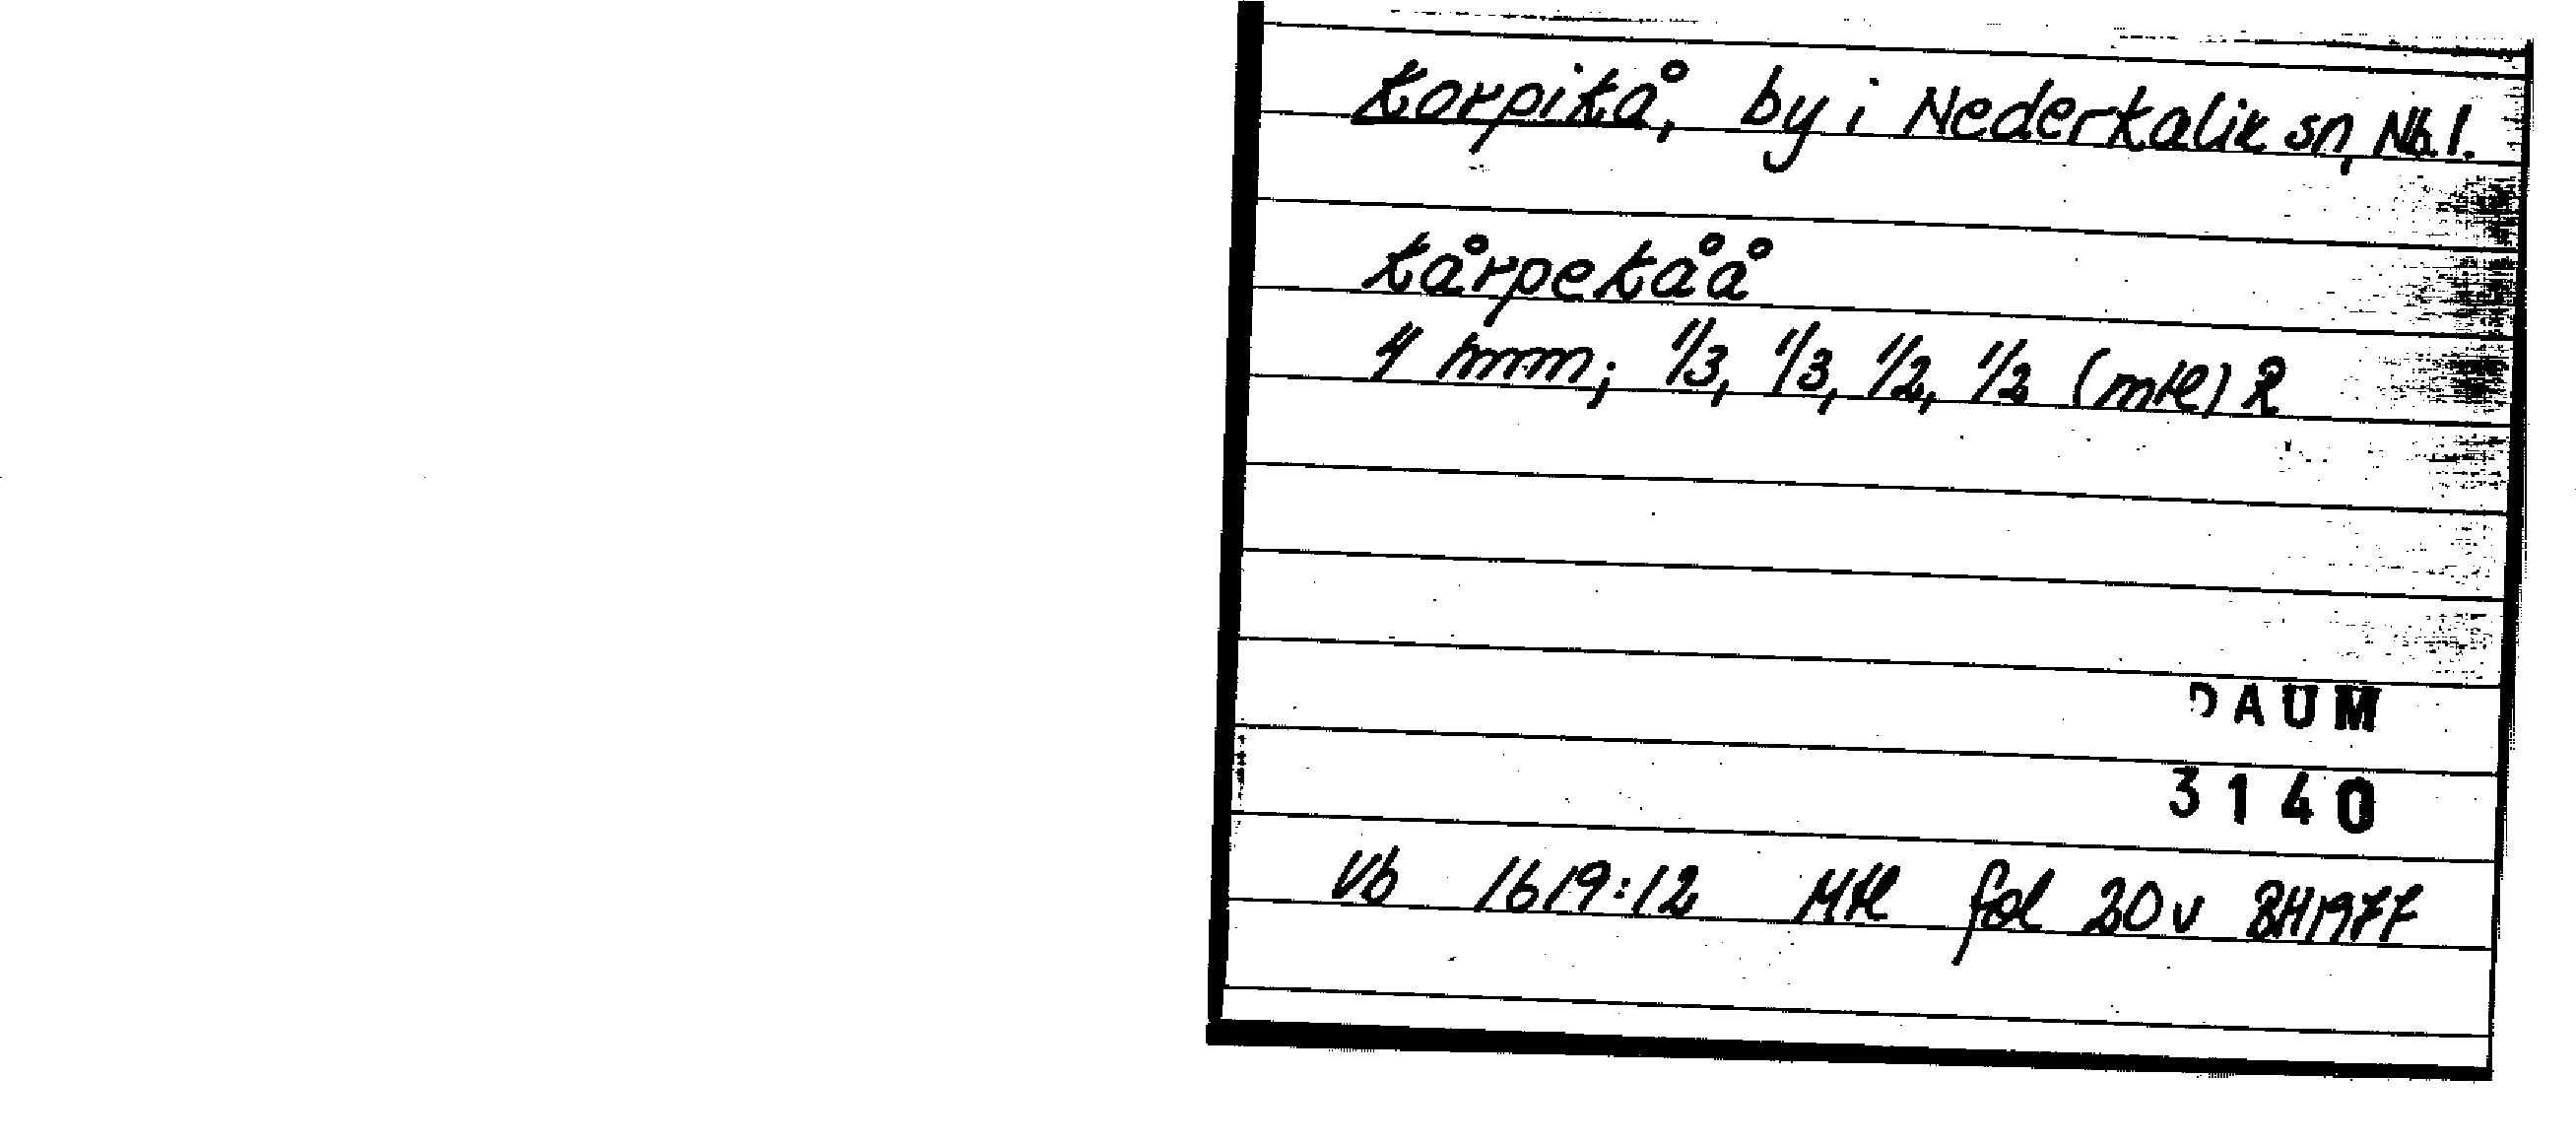 Korpikå, by i Nederkalix sn, Nb.l.
Kårpekåå
4 hmm; 1/3, 1/3, 1/2, 1/2 (mtl) R
DAUM
3140
Vb 1619:12 Mtl fol 20v BH1977